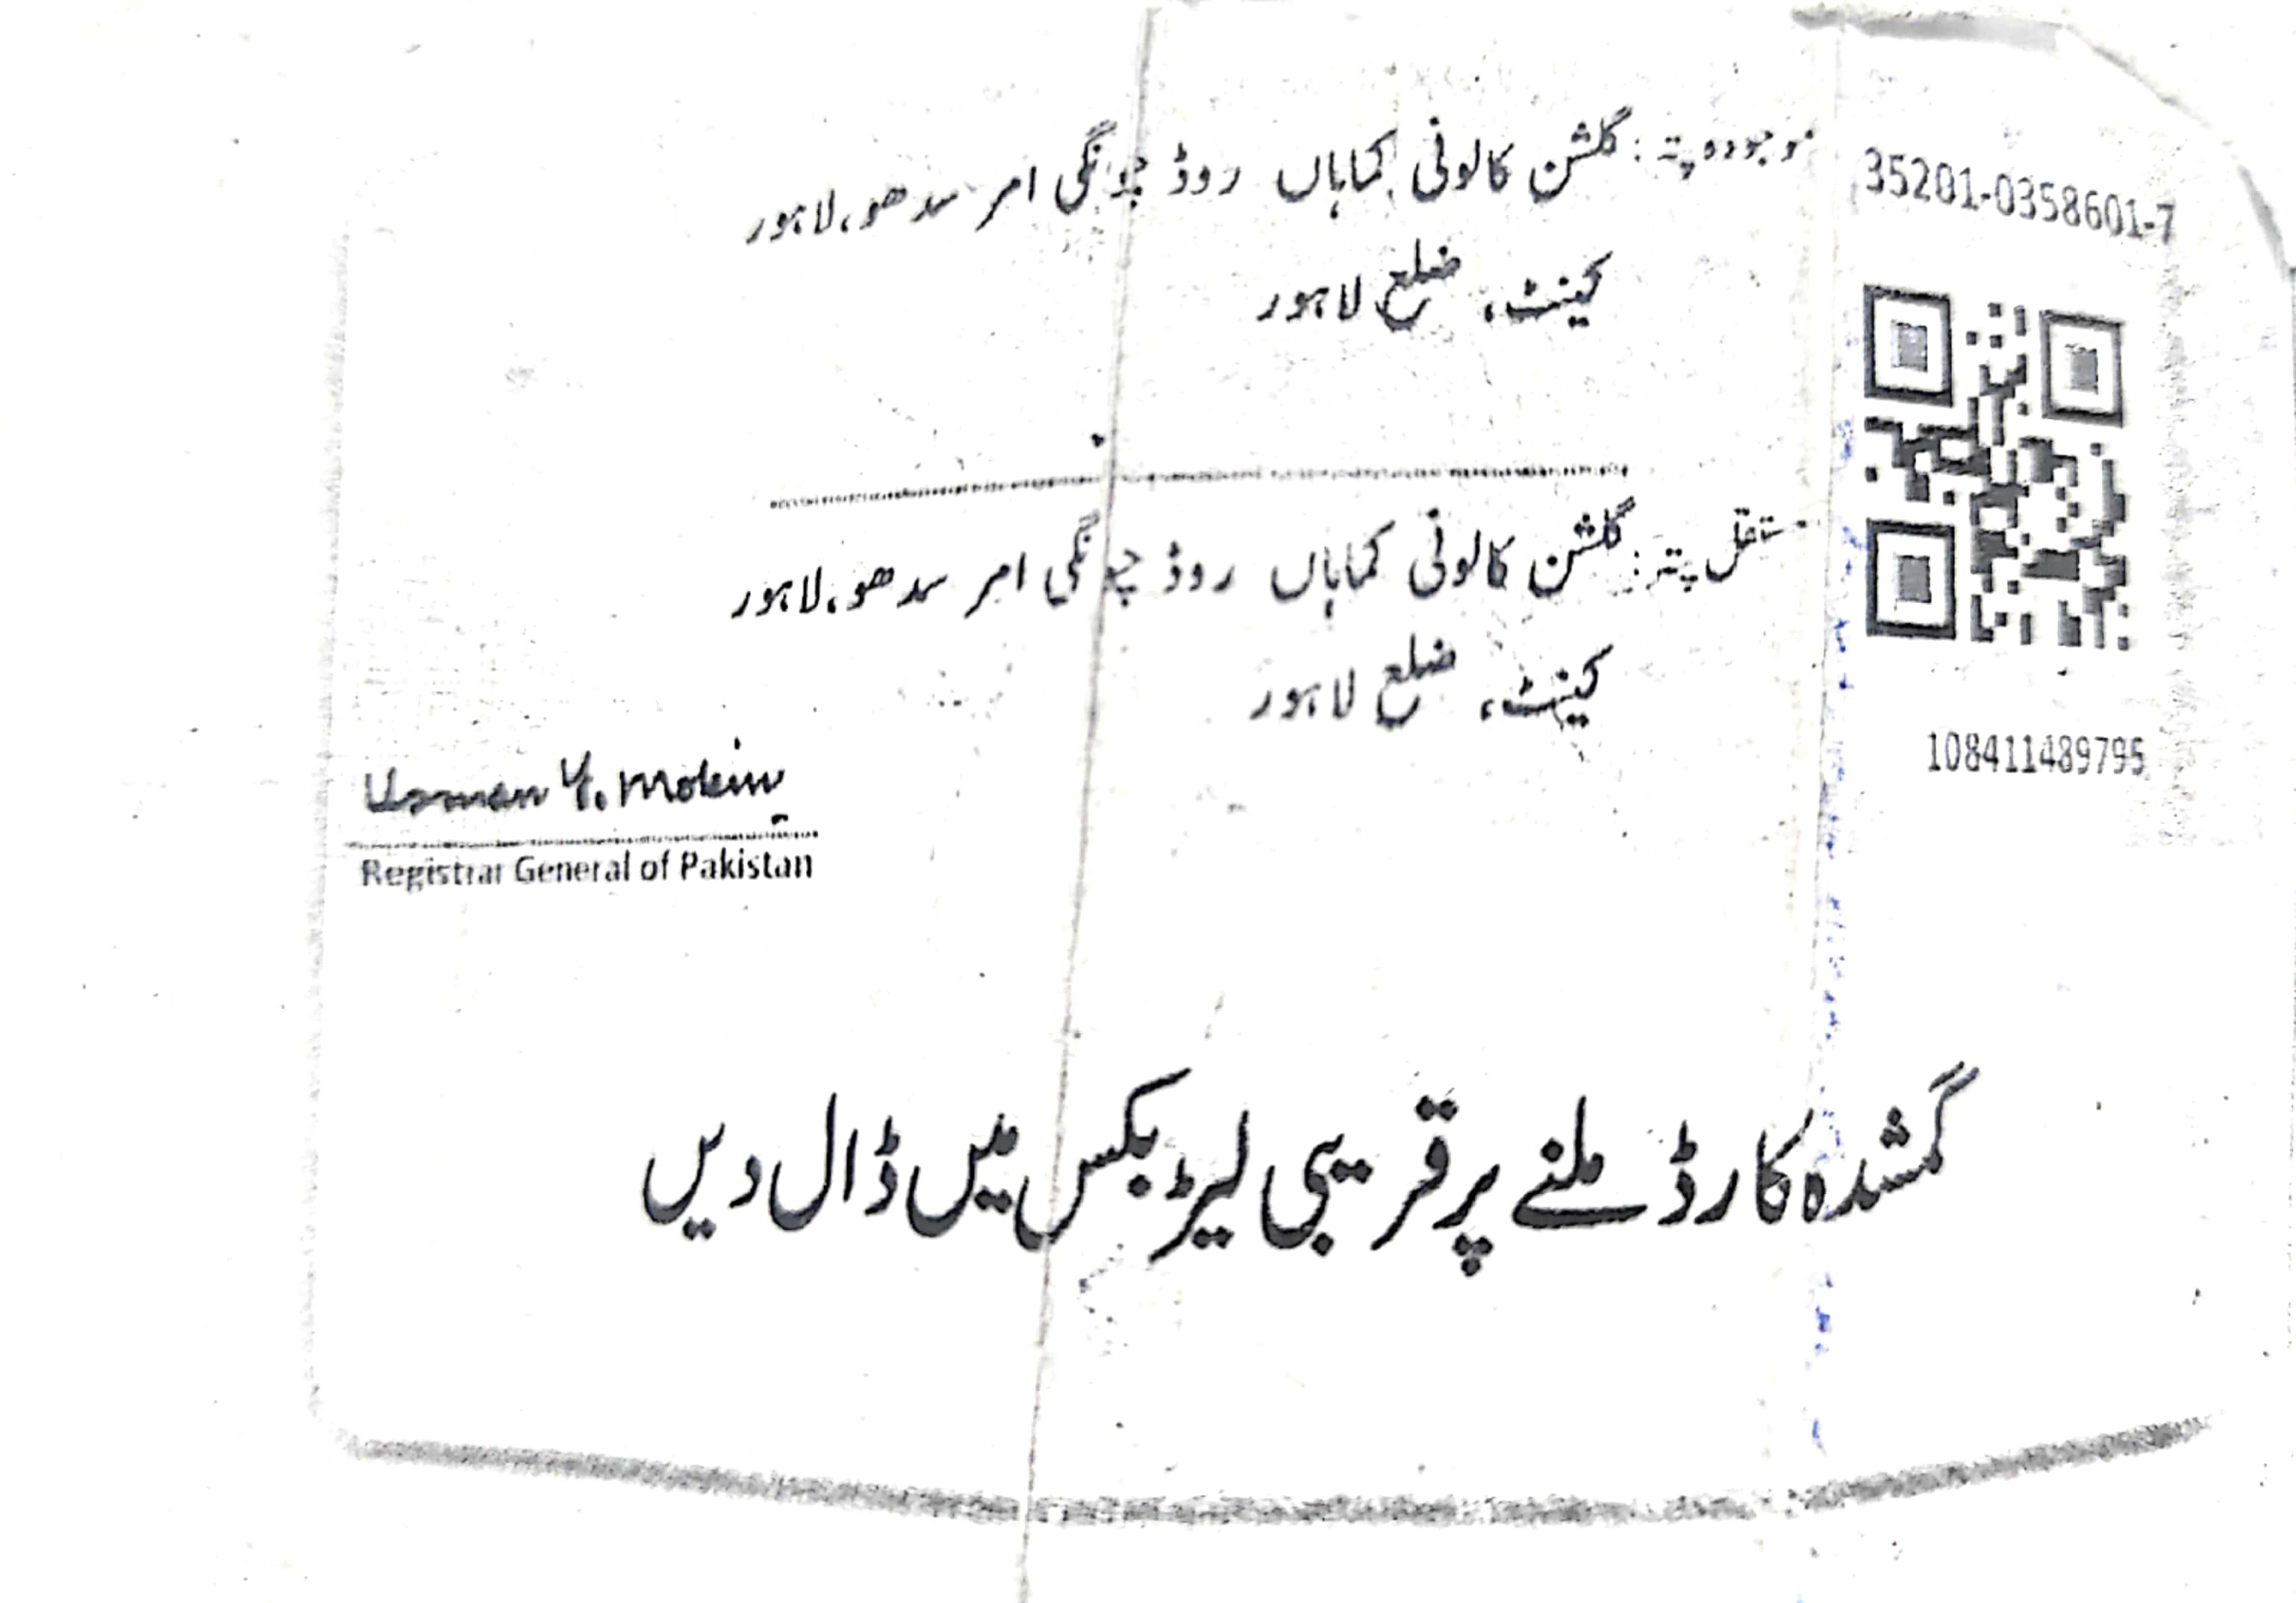 35201-0358601-7
موجودہ پتہ: گلشن کالونی کماہاں روڈ چونگی امر سدھو، لاہور
کینٹ، ضلع لاہور
مستقل پتہ: گلشن کالونی کماہاں روڈ چونگی امر سدھو، لاہور
کینٹ، ضلع لاہور
108411489795
Usman Y. Mobin
Registrar General of Pakistan
گمشدہ کارڈ ملنے پر قریبی لیٹر بکس میں ڈال دیں